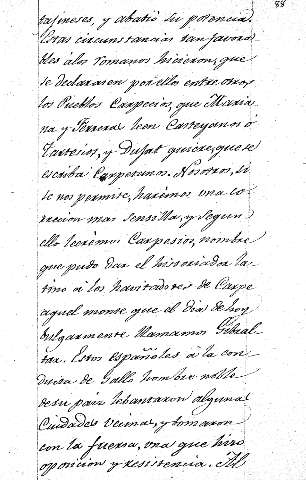 88
tagineses, y abatió su potencia.
Estas circunstancias tan favora
bles á los romanos hicieron, que
se declarasen por ellos entre otros
los Pueblos Carpecios, que Maria
na y Ferreras leen Carteyanos ó
Tartesios, y Dujat quiere, que se
escriba Carpetanos. Nosotros, si
se nos permite, harémos una co
rreccion mas sensilla, y segun
ella leerémos Carpesios, nombre
que pudo dar el historiador la
tino á los havitadores de Carpe
aquel monte que el dia de hoy
bulgarmente llamamos Gibral
tar. Estos españoles á la con
ducta de Gallo hombre noble
de su pais lebantaron alguna
Ciudades vecinas, y tomaron
con la fuersa, una que hiso
oposicion y resistencia. Al